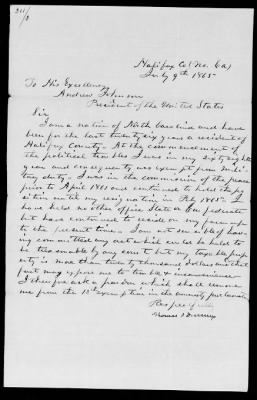 Halifax Co (No. Ca)
July 9th 1865
To His Excellency
Andrew Johnson
President of the United States
Sir
I am a native of North Carolina and have
been for the last twenty six years a resident of
Halifax County. At the commencement of
the political troubles I was in my sixty eighth
year and consequently was exempt from mili-
tary duty. I was in the commission of the peace
prior to April 1861 and continued to hold that po-
sition until my resignation in Feb 1865. I
have held no other office State or Confederate
but have continued to reside on my farm up
to the present time. I am not sensible of hav-
ing committed any act which could be held to
be treasonable by any court but my taxable prop-
erty is more than twenty thousand dollars and that
fact may expose me to trouble & inconvenience
I therefore ask a pardon which shall remove
me from the 13th exemption in the amnesty proclamation
Respectfully
Thomas